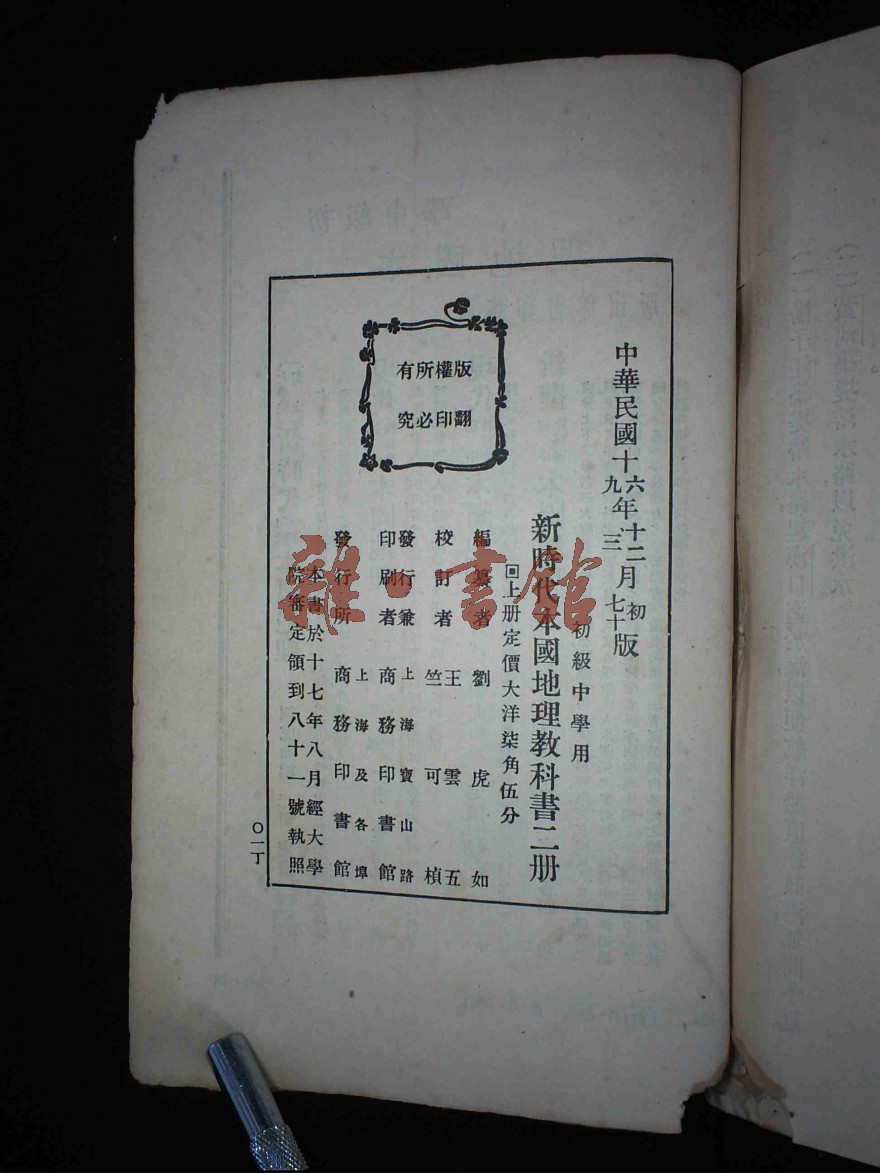 中華民國十六年十二月初版
九三七十
初級中學用
新時代本國地理教科書二册
回上册定價大洋柒角伍分
編纂者 劉虎如
校訂者 王雲五
竺可楨
發行兼印刷者 上海寶山路
商務印書館
發行所 上海及各埠
商務印書館
本書於十七年八月經大學
院審定領到八十一號執照
版權所有
翻印必究
〇一丁
雜·書館